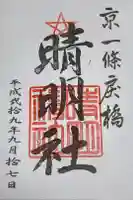 京一條戻橋
晴明社
平成弐拾九年九月拾七日